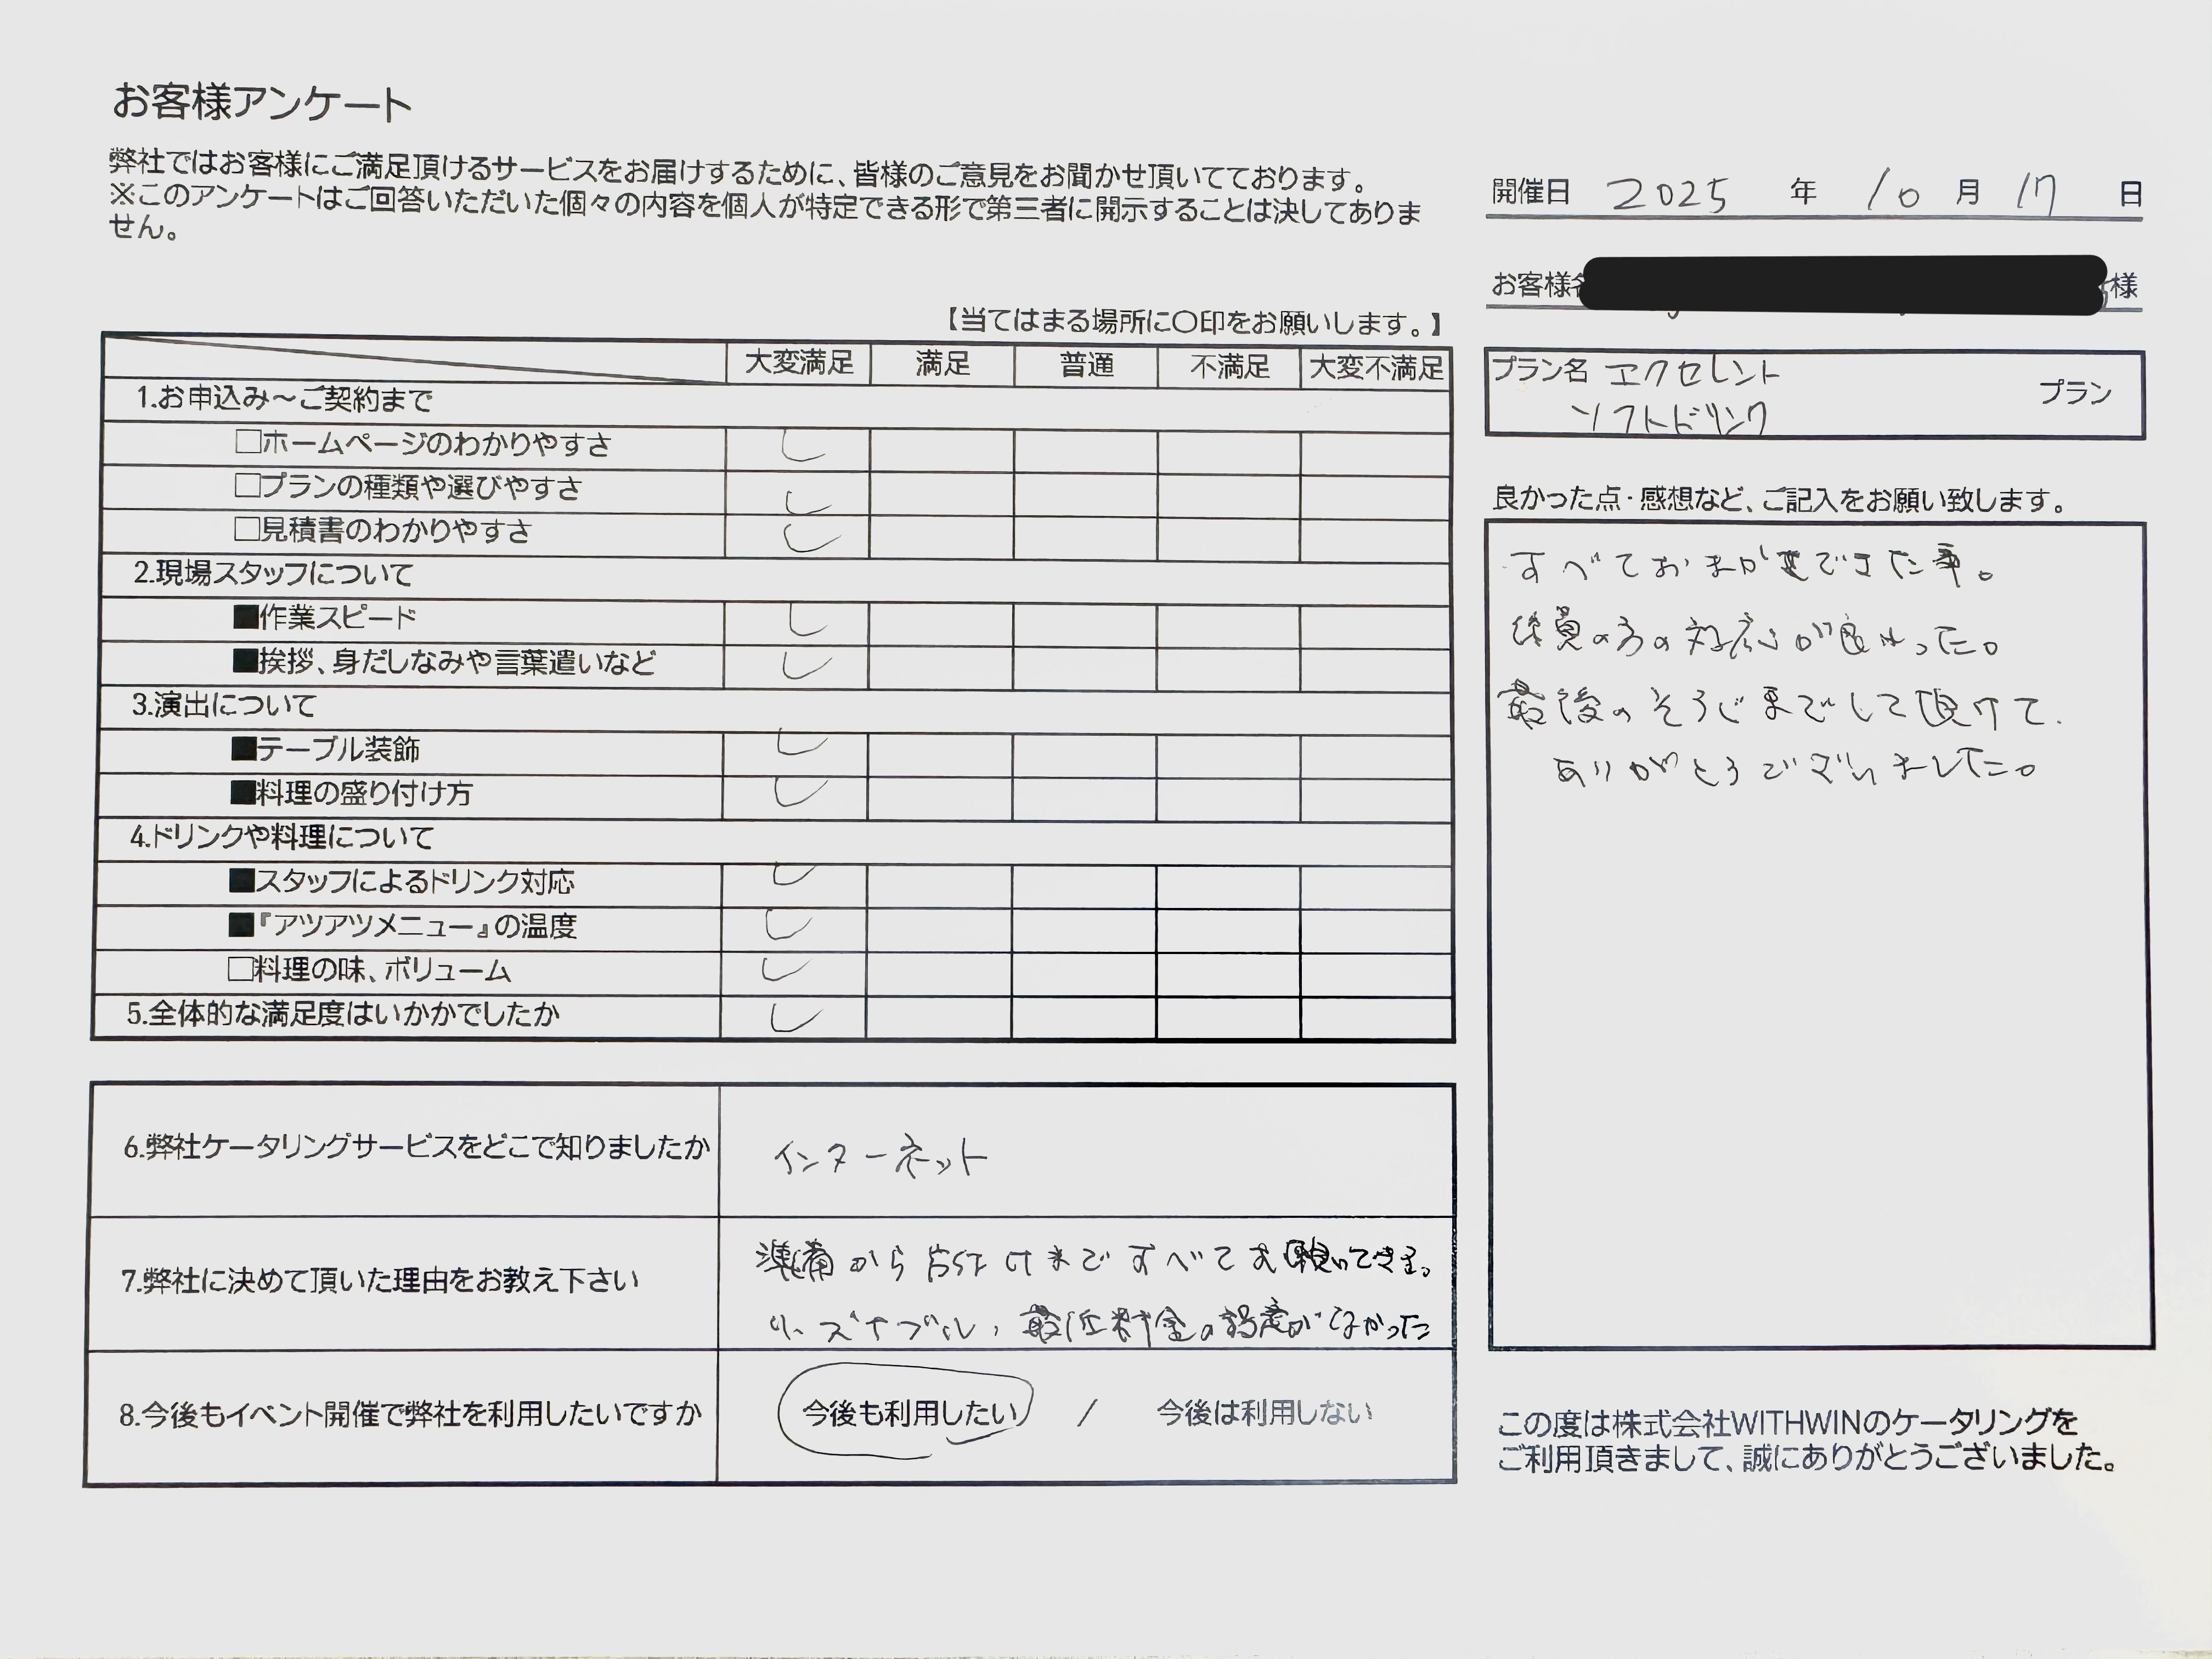 お客様アンケート
弊社ではお客様にご満足頂けるサービスをお届けするために、皆様のご意見をお聞かせ頂いてております。
※このアンケートはご回答いただいた個々の内容を個人が特定できる形で第三者に開示することは決してありま
せん。
【当てはまる場所に〇印をお願いします。】
大変満足 満足 普通 不満足 大変不満足
1.お申込み～ご契約まで
□ホームページのわかりやすさ
□プランの種類や選びやすさ
□見積書のわかりやすさ
2.現場スタッフについて
■作業スピード
■挨拶、身だしなみや言葉遣いなど
3.演出について
■テーブル装飾
■料理の盛り付け方
4.ドリンクや料理について
■スタッフによるドリンク対応
■『アツアツメニュー』の温度
□料理の味、ボリューム
5.全体的な満足度はいかがでしたか
6.弊社ケータリングサービスをどこで知りましたか
インターネット
7.弊社に決めて頂いた理由をお教え下さい
準備から片付けまですべてお願いできる。
リーズナブル、最低料金の設定がなかった
8.今後もイベント開催で弊社を利用したいですか
今後も利用したい / 今後は利用しない
開催日 2025 年 10 月 17 日
お客様名 様
プラン名 エクセレント
ソフトドリンク
プラン
良かった点・感想など、ご記入をお願い致します。
すべておまかせできた事。
係員の方の対応が良かった。
最後のそうじまでして頂けて、
ありがとうございました。
この度は株式会社WITHWINのケータリングを
ご利用頂きまして、誠にありがとうございました。